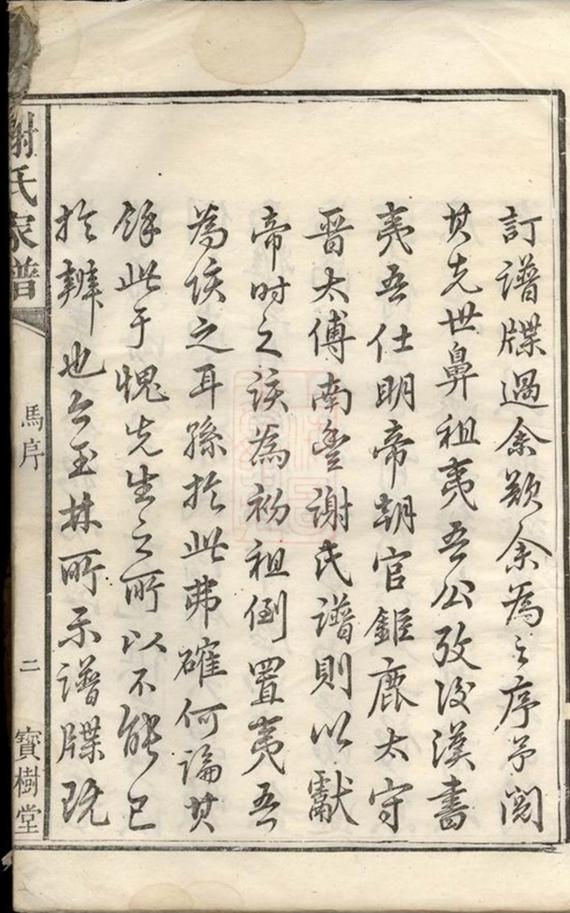 訂譜牒過余歎余為之序予閱
其先世鼻祖夷吾公攷後漢書
夷吾仕明帝朝官鉅鹿太守
晉太傅南豐謝氏譜則以獻
帝時之該為初祖倒置夷吾
為該之耳孫於此弗確何論其
餘此于愧先生之所以不能已
於辨也今玉林所示譜牒既
謝氏家譜
馬序
二
寶樹堂